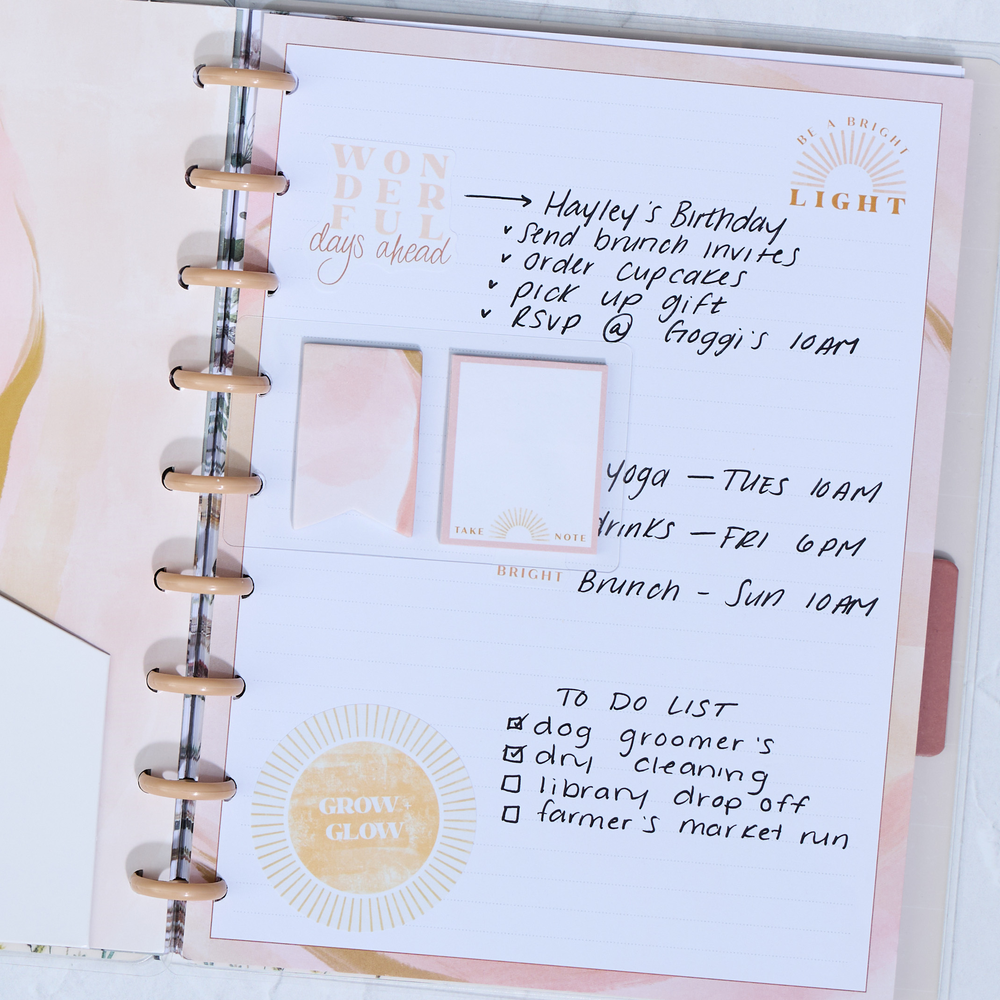 BE A BRIGHT
LIGHT
WON
DER
FUL
days ahead
→ Hayley's Birthday
✓ Send brunch invites
✓ order cupcakes
✓ pick up gift
✓ RSVP @ Goggi's 10AM
yoga — TUES 10AM
drinks — FRI 6PM
Brunch - Sun 10AM
TAKE NOTE
BRIGHT
TO DO LIST
☑ dog groomer's
☑ dry cleaning
☐ library drop off
☐ farmer's market run
GROW +
GLOW